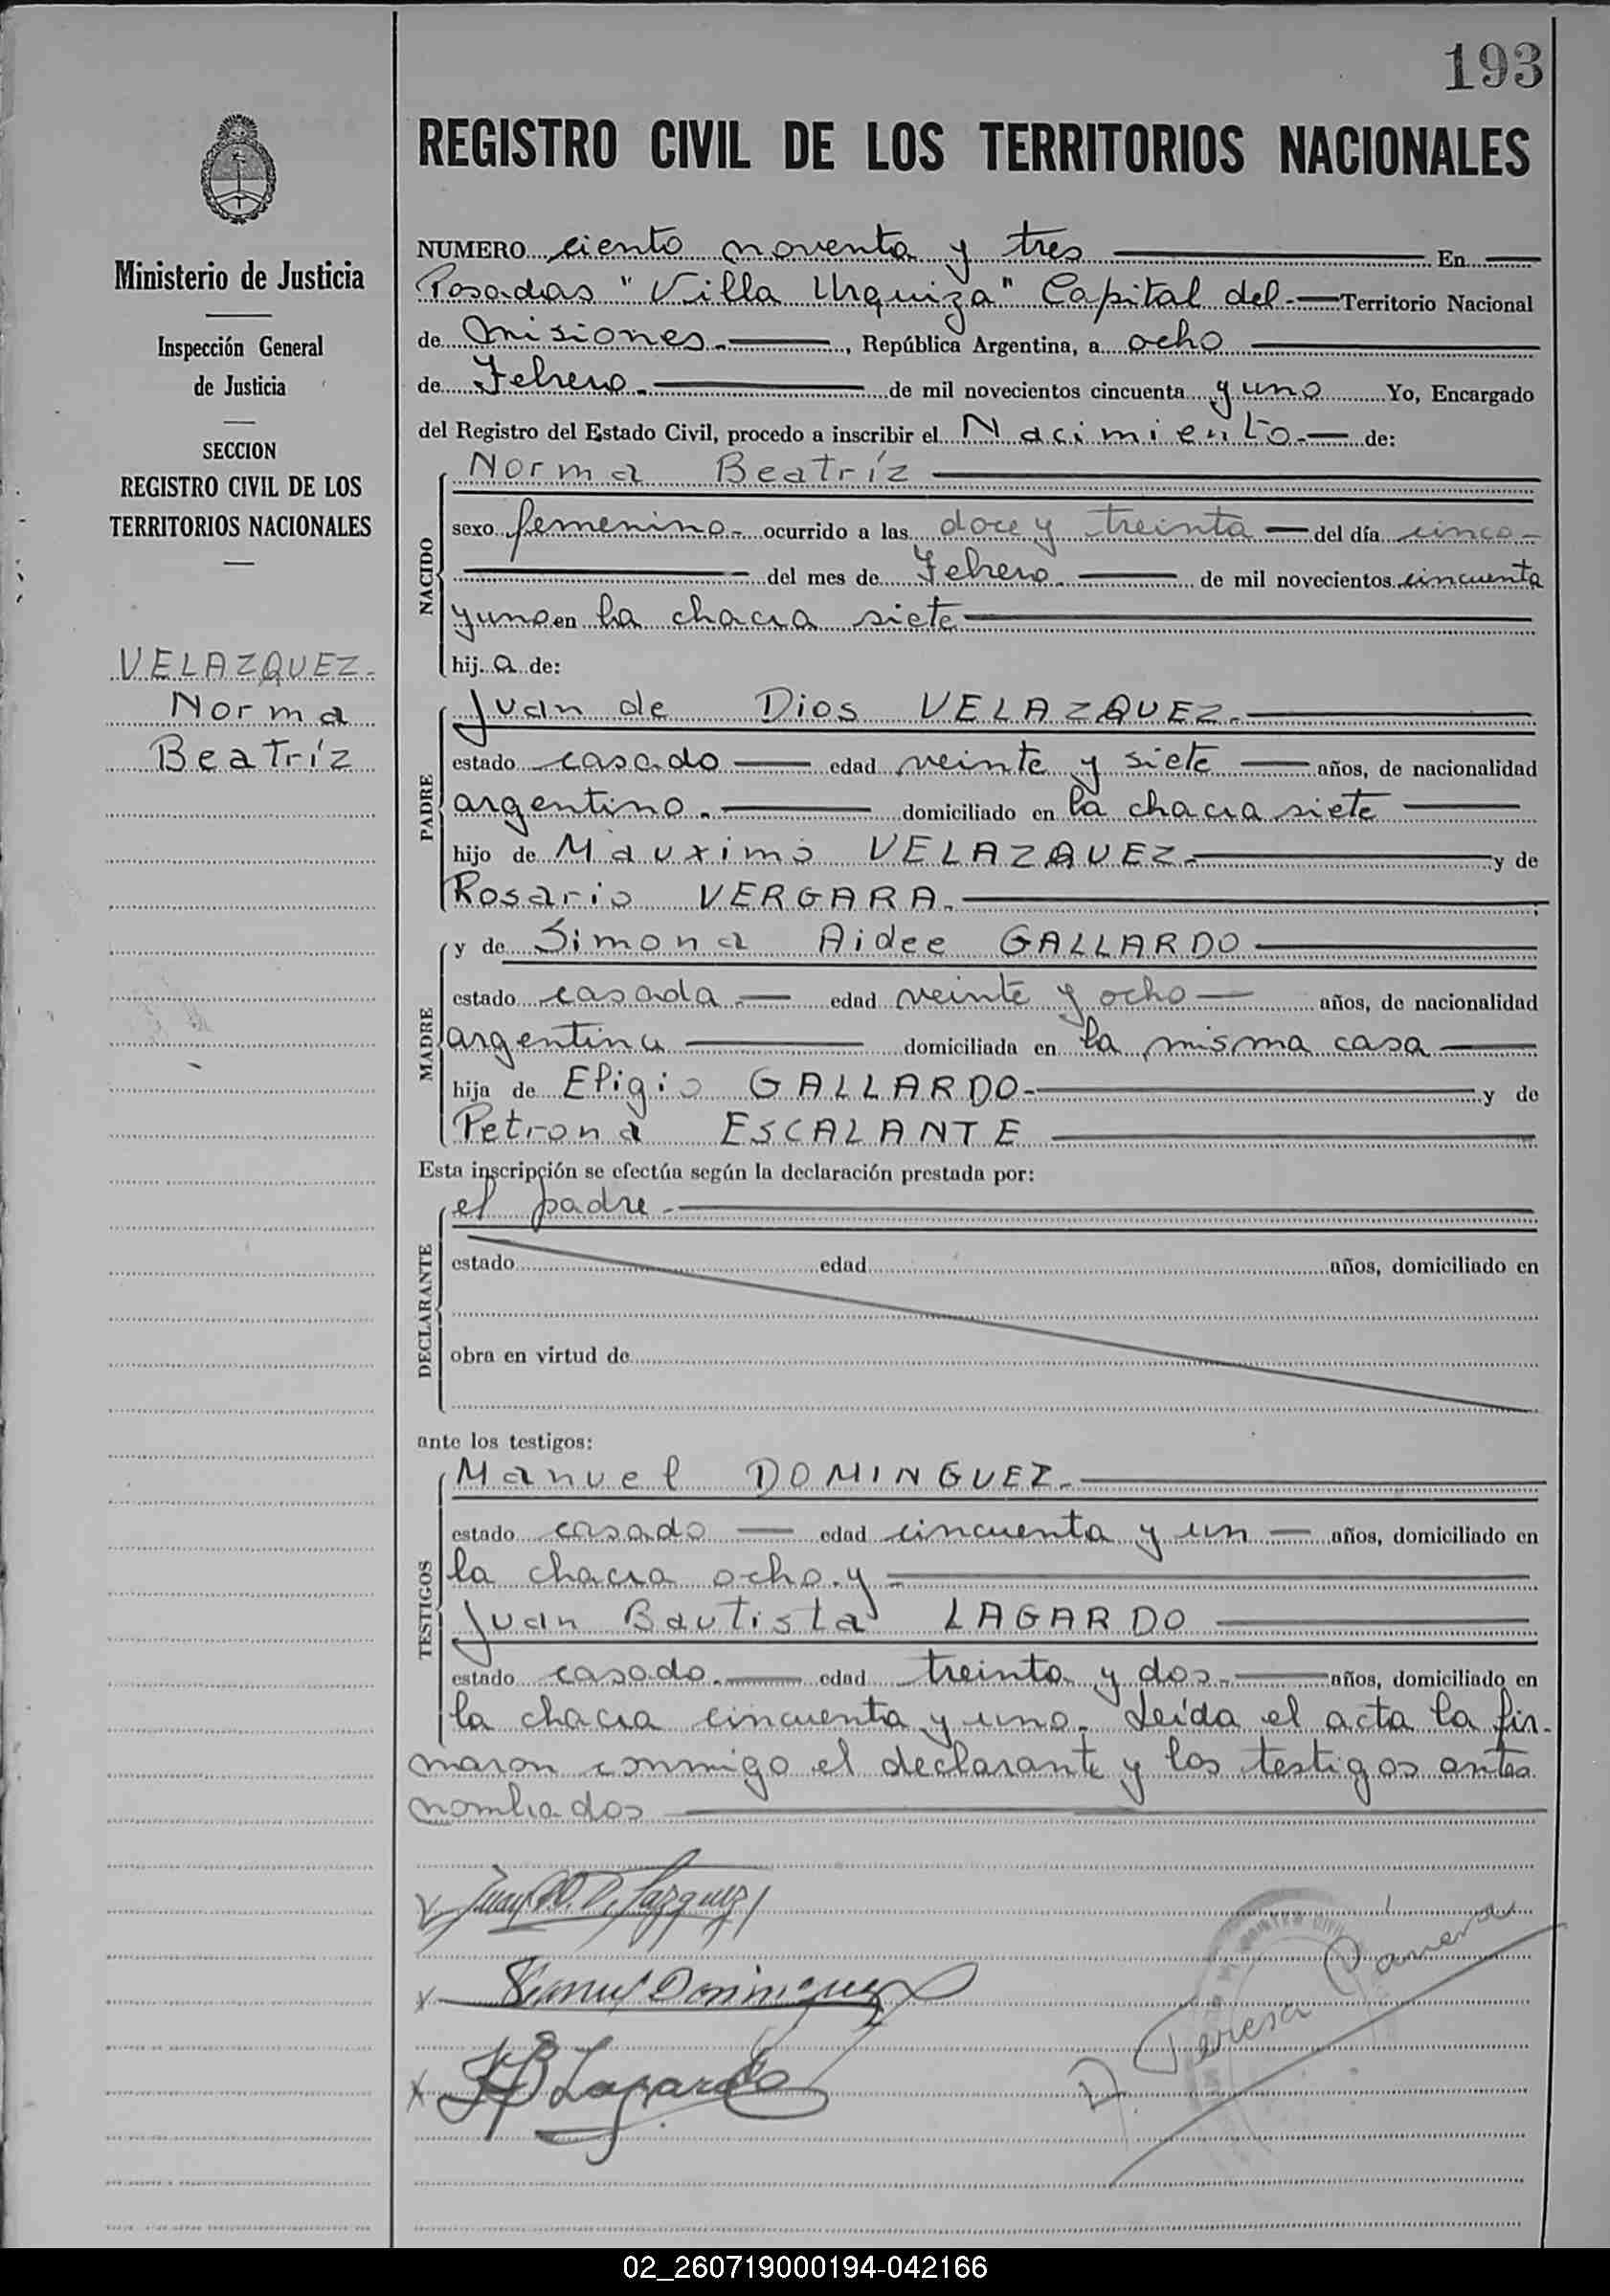 193
REGISTRO CIVIL DE LOS TERRITORIOS NACIONALES
Ministerio de Justicia
Inspección General
de Justicia
SECCION
REGISTRO CIVIL DE LOS
TERRITORIOS NACIONALES
VELAZQUEZ.
Norma
Beatríz
NUMERO ciento noventa y tres En
Posadas "Villa Urquiza" Capital del Territorio Nacional
de Misiones, República Argentina, a ocho
de Febrero de mil novecientos cincuenta y uno Yo, Encargado
del Registro del Estado Civil, procedo a inscribir el Nacimiento de:
NACIDO
Norma Beatríz
sexo femenino ocurrido a las doce y treinta del día cinco
del mes de Febrero de mil novecientos cincuenta
y uno en la chacra siete
hija de:
PADRE
Juan de Dios VELAZQUEZ.
estado casado edad veinte y siete años, de nacionalidad
argentino. domiciliado en la chacra siete
hijo de Mauximo VELAZQUEZ. y de
Rosario VERGARA.
MADRE
y de Simona Aidee GALLARDO
estado casada edad veinte y ocho años, de nacionalidad
argentina domiciliada en la misma casa
hija de Eligio GALLARDO. y de
Petrona ESCALANTE
Esta inscripción se efectúa según la declaración prestada por:
DECLARANTE
el padre
estado edad años, domiciliado en
obra en virtud de
ante los testigos:
TESTIGOS
Manuel DOMINGUEZ.
estado casado edad cincuenta y un años, domiciliado en
la chacra ocho y
Juan Bautista LAGARDO
estado casado. edad treinta y dos años, domiciliado en
la chacra cincuenta y uno. Leída el acta la fir-
maron conmigo el declarante y los testigos antes
nombrados
Manuel Dominguez
JB Lagardo
Teresa
02_260719000194-042166